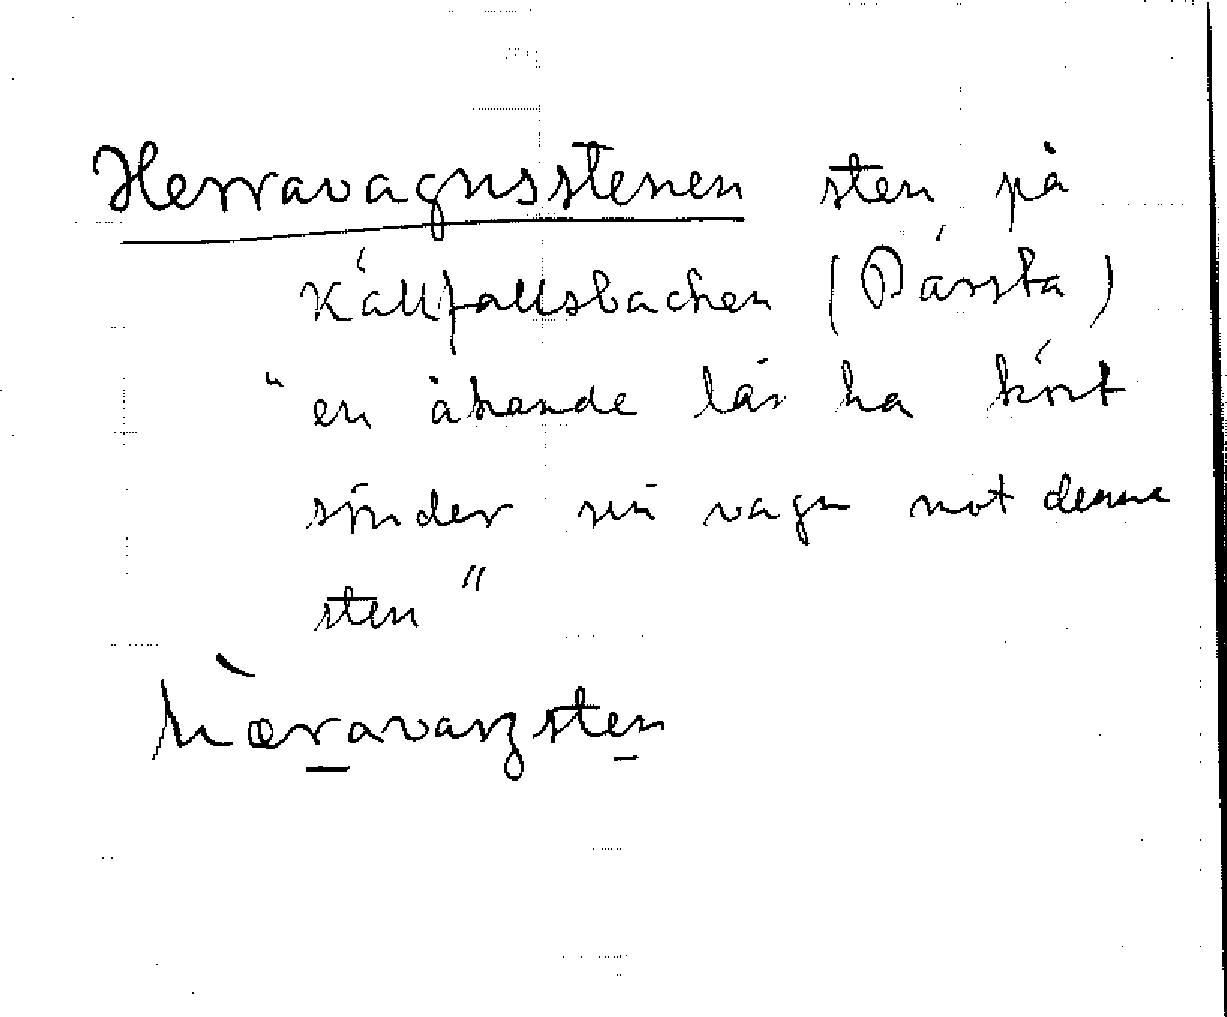 Herravagnsstenen sten på
Källfallsbacken (Pärsta)
"en åkande lär ha kört
sönder sin vagn mot denna
sten"
hæravaŋsten